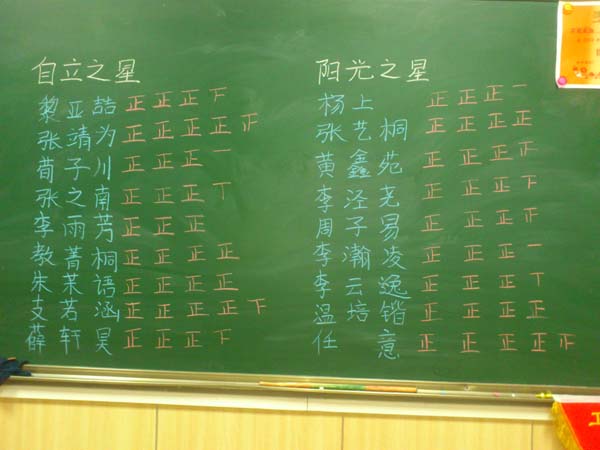 自立之星
黎亚喆 正正正下
张靖为 正正正正正
荀子川 正正正一
张之南 正正正丅
李雨芳 正正正
教菁桐 正正正正
朱茉语 正正正正
支若涵 正正正正下
薛轩昊 正正正下
阳光之星
杨上 正正正一
张艺桐 正正正正
黄鑫苑 正正正正
李泾 正正正下
周子易 正正正正
李瀚凌 正正正一
李云逸 正正正丅
温培锴 正正正正
任意 正正正正正